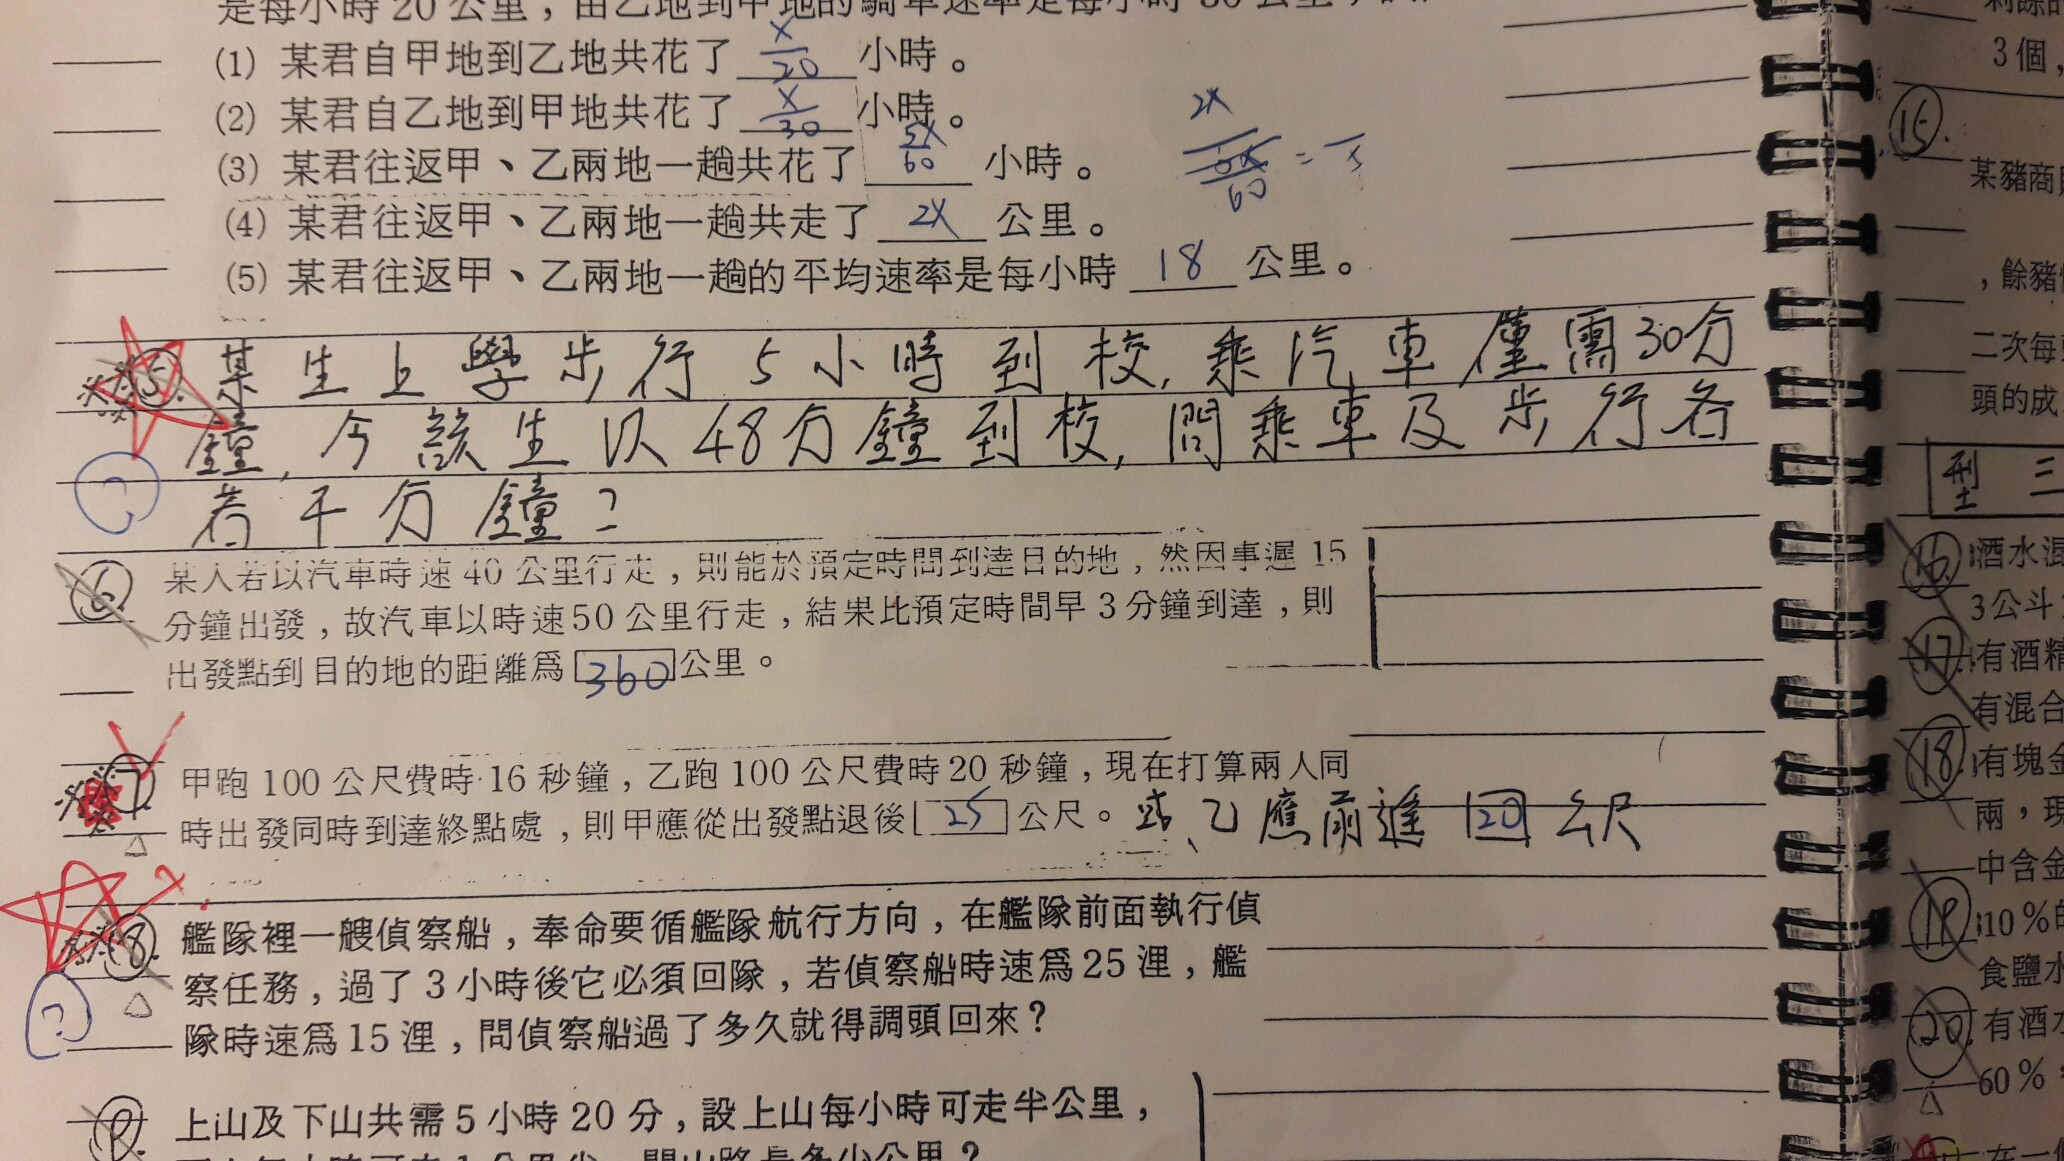 是每小時20公里，由乙地到甲地的騎車速率是每小時30公里，
(1) 某君自甲地到乙地共花了 x/20 小時。
(2) 某君自乙地到甲地共花了 x/30 小時。
2x
(3) 某君往返甲、乙兩地一趟共花了 5x/60 小時。
5x/60 =
(4) 某君往返甲、乙兩地一趟共走了 2x 公里。
(5) 某君往返甲、乙兩地一趟的平均速率是每小時 18 公里。
5. 某生上學步行5小時到校,乘汽車僅需30分
鐘,今該生以48分鐘到校,問乘車及步行各
若干分鐘?
?
6. 某人若以汽車時速40公里行走，則能於預定時間到達目的地，然因事遲15
分鐘出發，故汽車以時速50公里行走，結果比預定時間早3分鐘到達，則
出發點到目的地的距離為 360 公里。
7. 甲跑100公尺費時16秒鐘，乙跑100公尺費時20秒鐘，現在打算兩人同
時出發同時到達終點處，則甲應從出發點退後 25 公尺。或乙應前進 20 公尺
8. 艦隊裡一艘偵察船，奉命要循艦隊航行方向，在艦隊前面執行偵
察任務，過了3小時後它必須回隊，若偵察船時速為25浬，艦
隊時速為15浬，問偵察船過了多久就得調頭回來？
?
9. 上山及下山共需5小時20分，設上山每小時可走半公里，
3個，
15.
某豬商
，餘豬
二次每
頭的成
型 三
16. 酒水混
3公斗
17. 有酒精
有混合
18. 有塊金
兩，現
中含金
19. 10％的
食鹽水
20. 有酒
60％